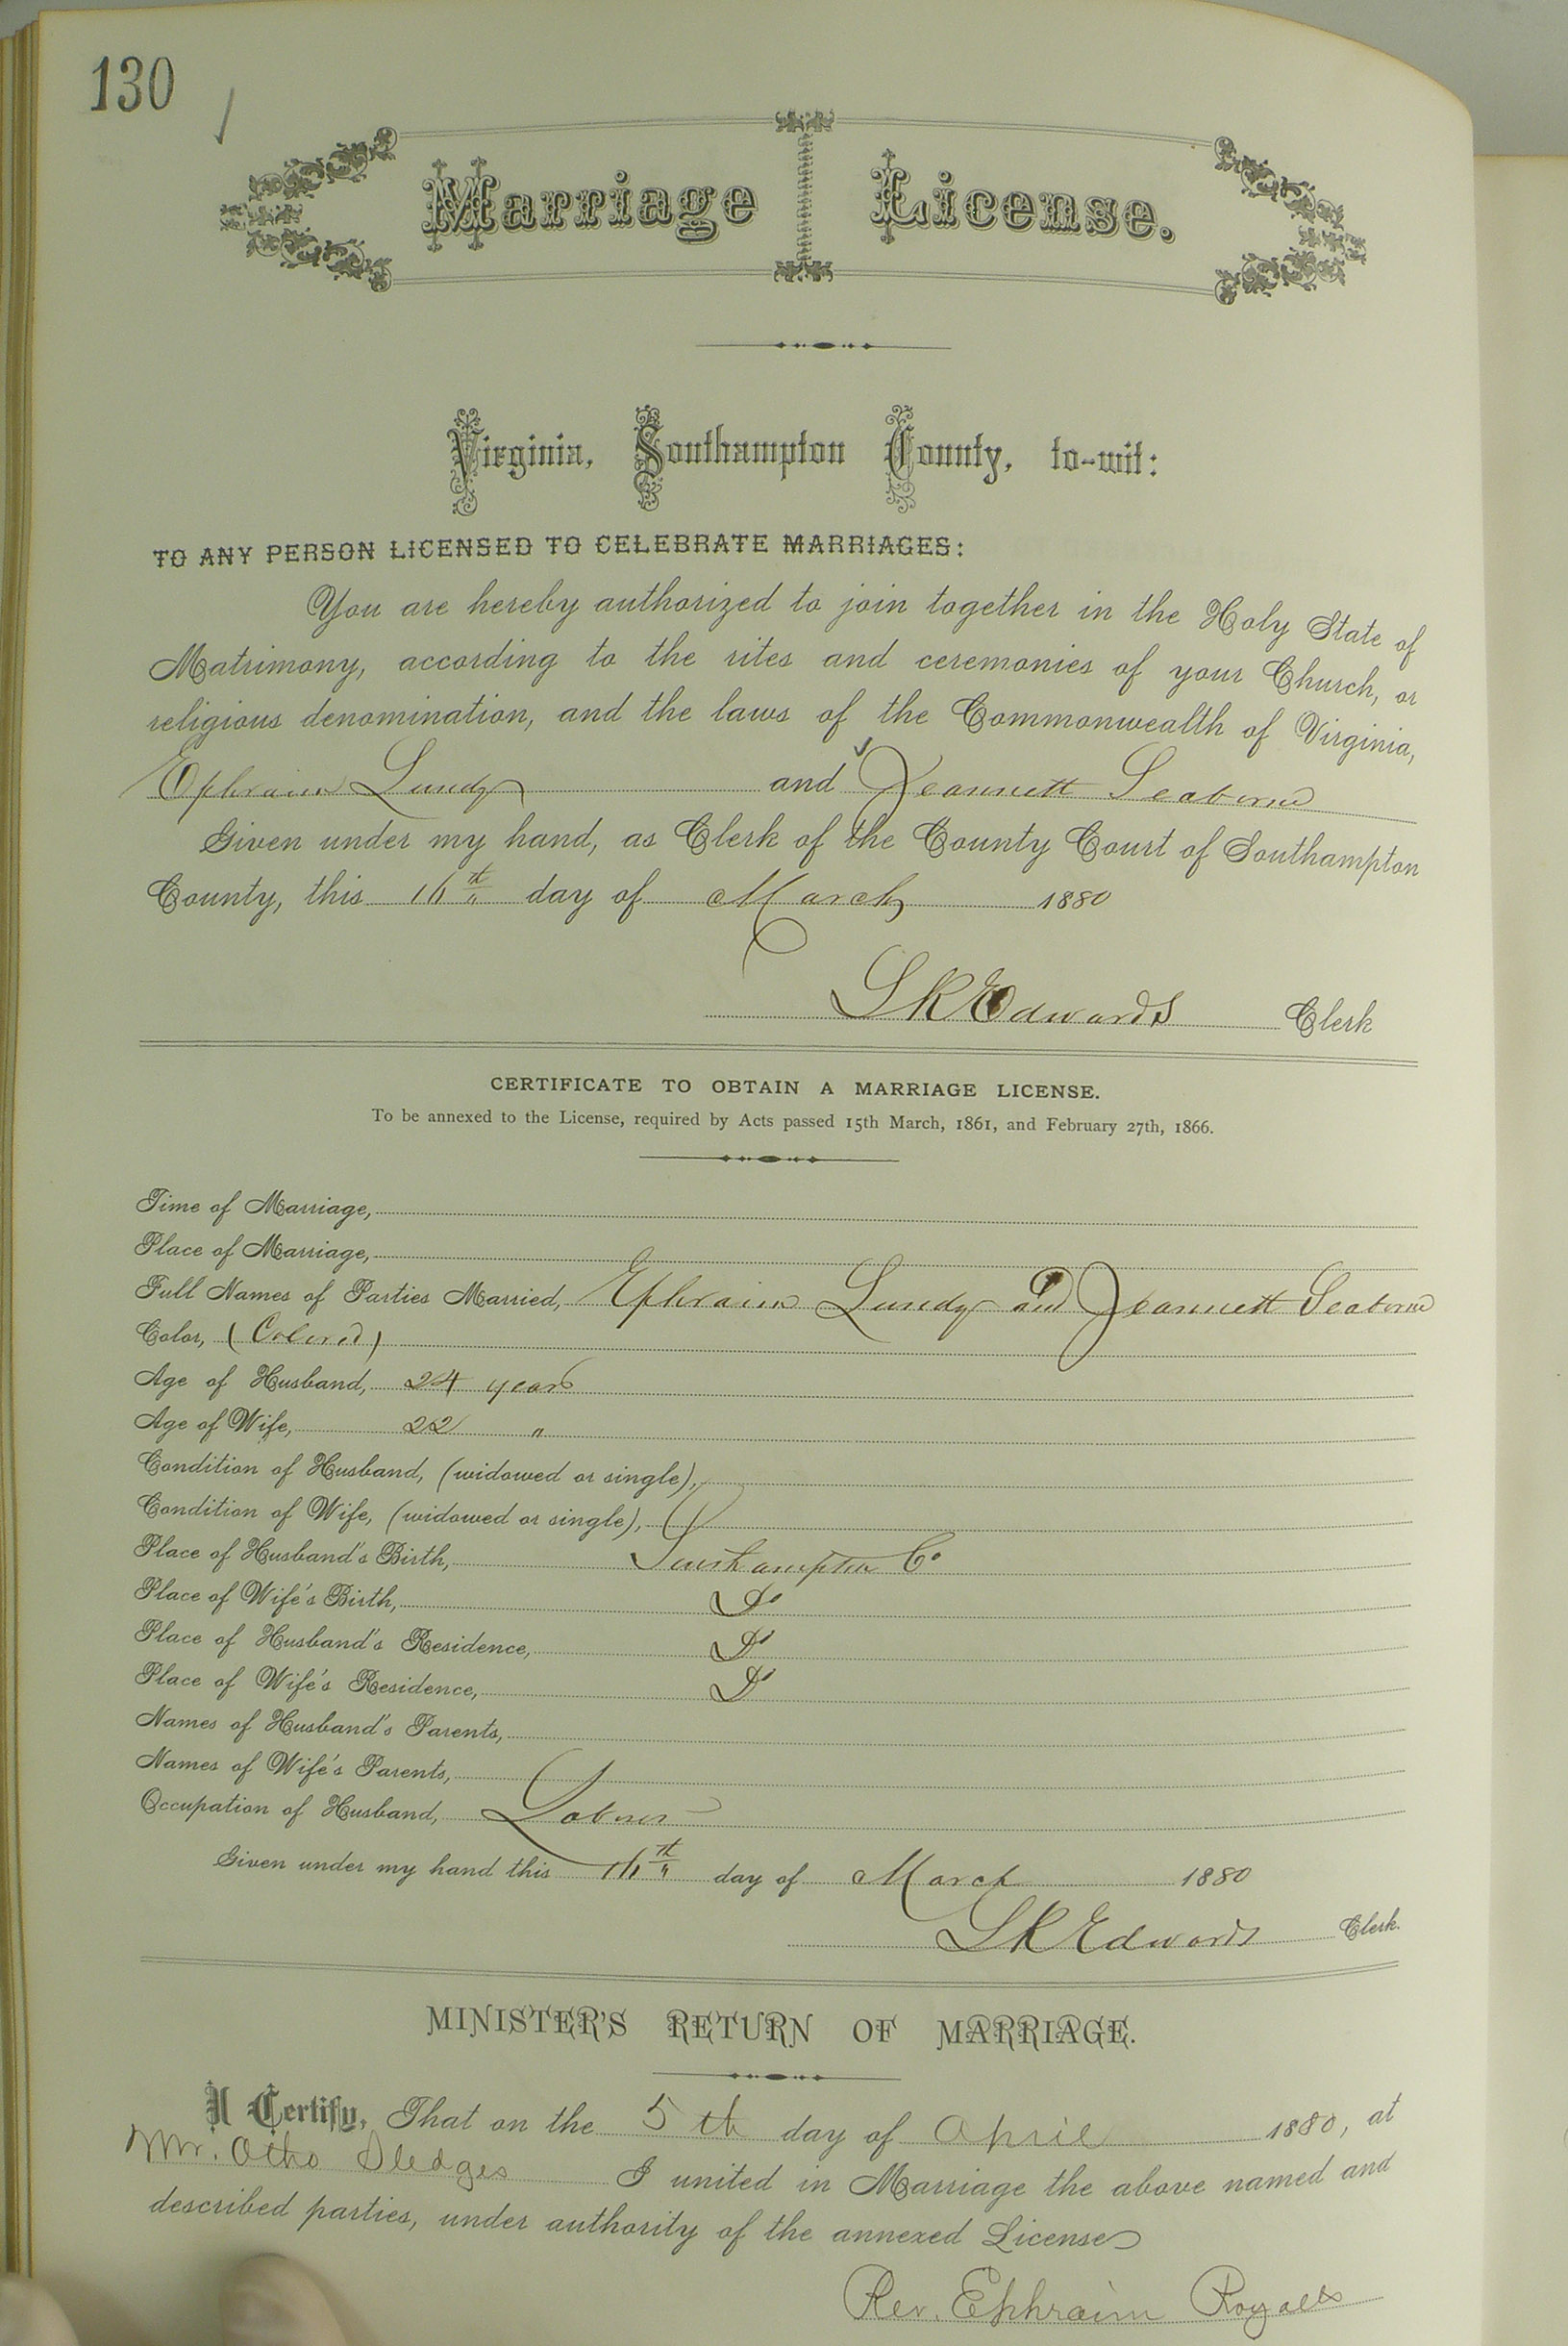 130
Marriage License.
Virginia, Southampton County, to-wit:
TO ANY PERSON LICENSED TO CELEBRATE MARRIAGES:
You are hereby authorized to join together in the Holy State of
Matrimony, according to the rites and ceremonies of your Church, or
religious denomination, and the laws of the Commonwealth of Virginia,
Ephraim Lundy and Jeannett Seaborne
Given under my hand, as Clerk of the County Court of Southampton
County, this 16th day of March 1880
L R Edwards Clerk
CERTIFICATE TO OBTAIN A MARRIAGE LICENSE.
To be annexed to the License, required by Acts passed 15th March, 1861, and February 27th, 1866.
Time of Marriage,
Place of Marriage,
Full Names of Parties Married, Ephraim Lundy and Jeannett Seaborne
Color, (Colored)
Age of Husband, 24 years
Age of Wife, 22 "
Condition of Husband, (widowed or single),
Condition of Wife, (widowed or single),
Place of Husband's Birth, Southampton Co
Place of Wife's Birth, Do
Place of Husband's Residence, Do
Place of Wife's Residence, Do
Names of Husband's Parents,
Names of Wife's Parents,
Occupation of Husband, Laborer
Given under my hand this 16th day of March 1880
L R Edwards Clerk.
MINISTER'S RETURN OF MARRIAGE.
I Certify, That on the 5th day of April 1880, at
Mr. Otho Sledges I united in Marriage the above named and
described parties, under authority of the annexed License
Rev. Ephraim Royalls